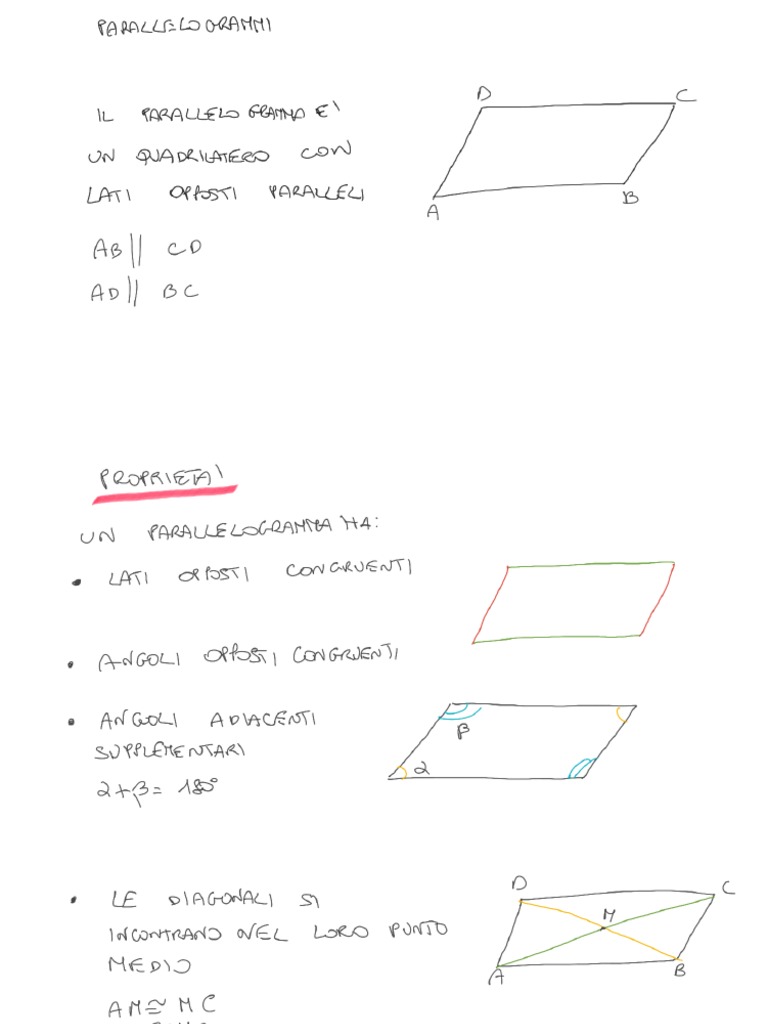 PARALLELOGRAMMI
D C
IL PARALLELOGRAMMA E'
UN QUADRILATERO CON
LATI OPPOSTI PARALLELI
A B
AB || CD
AD || BC
PROPRIETA'
UN PARALLELOGRAMMA HA:
• LATI OPPOSTI CONGRUENTI
• ANGOLI OPPOSTI CONGRUENTI
• ANGOLI ADIACENTI
SUPPLEMENTARI
β
α
α+β= 180°
D C
• LE DIAGONALI SI
M
INCONTRANO NEL LORO PUNTO
MEDIO
A B
AM ≅ MC